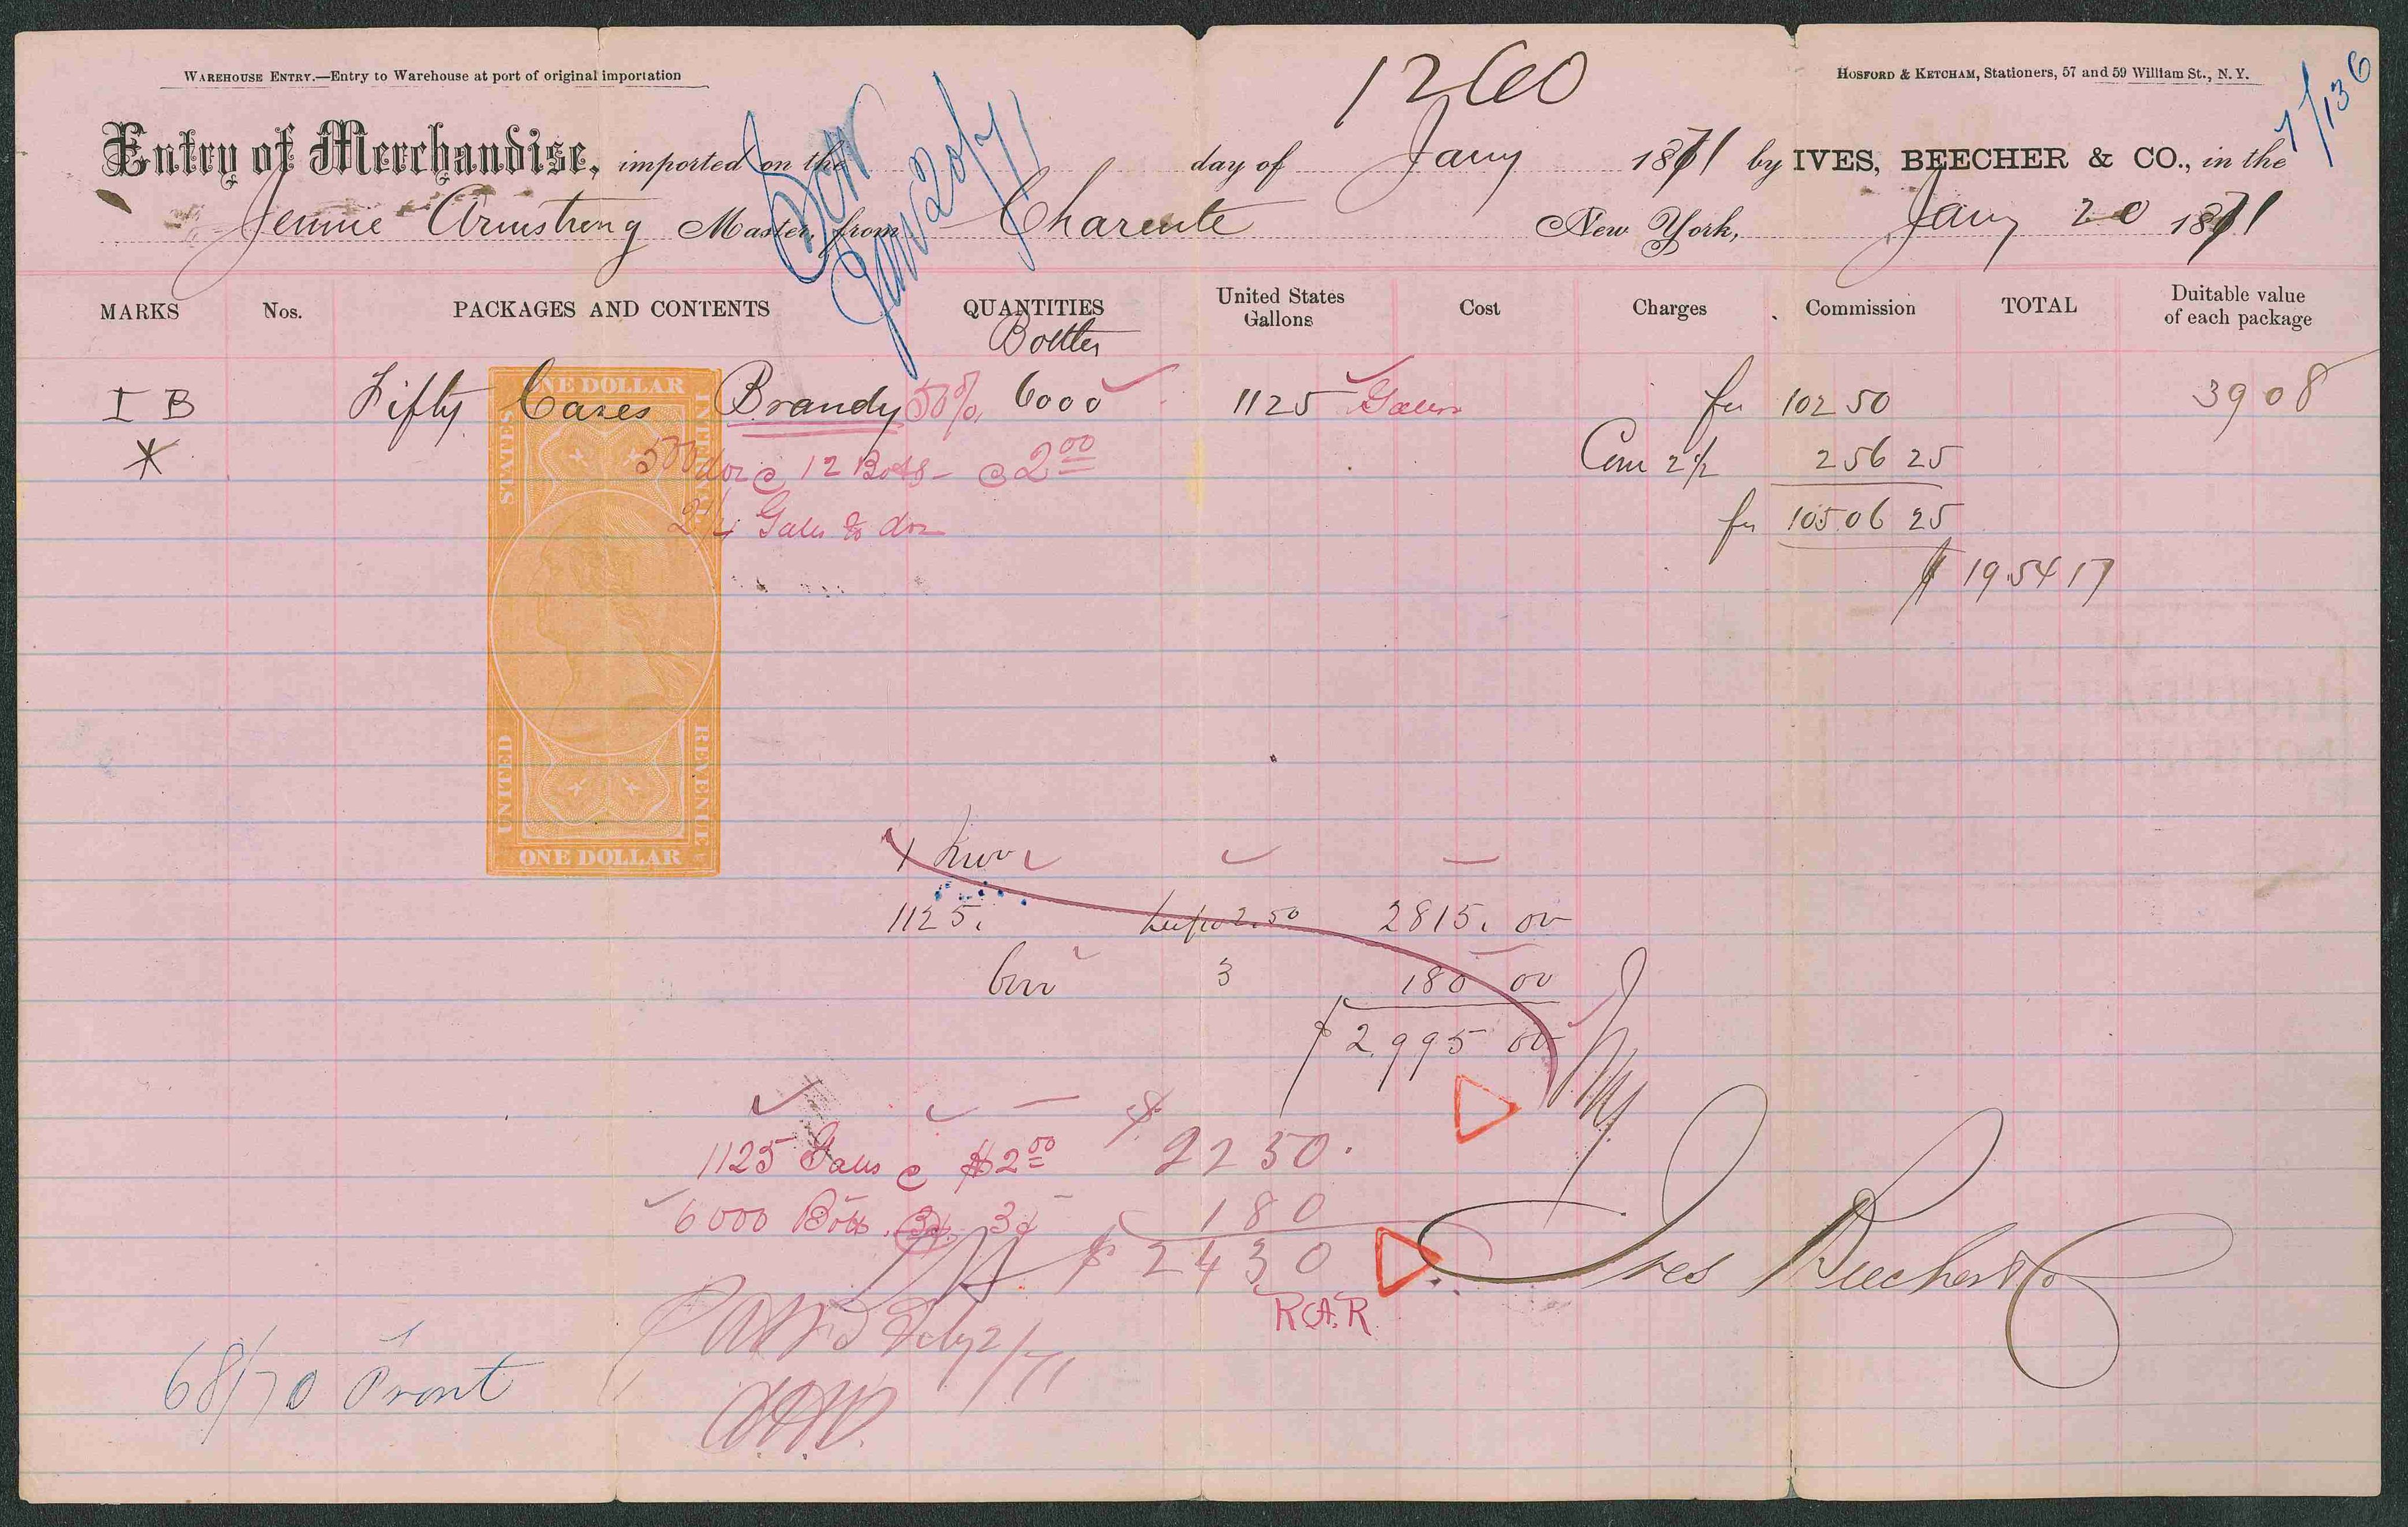 WAREHOUSE ENTRY.—Entry to Warehouse at port of original importation
1260
HOSFORD & KETCHAM, Stationers, 57 and 59 William St., N.Y.
7/136
Entry of Merchandise, imported on the day of Jany 1871 by IVES, BEECHER & CO., in the
Jennie Armstrong Master, from Charente New York, Jany 20 1871
Jan 20/71
MARKS Nos. PACKAGES AND CONTENTS QUANTITIES United States Gallons Cost Charges Commission TOTAL Duitable value of each package
Bottles
I B Fifty Cases Brandy 50% 6000 1125 Galls fr 102 50 39 08
* 500 doz @ 12 Botts - @ 2 00 Com 2 1/2 256 25
2 1/4 Galls to doz fr 105 06 25
$ 1954 17
ONE DOLLAR
UNITED STATES
INTER. REVENUE
ONE DOLLAR
1125. 2.50 2815. 00
3 180 00
$ 2995 00
1125 Galls @ $2 00 $ 2250.
6000 Botts. 3¢ 3¢ 180
$ 2430
R.A.R.
Ives Beecher & Co
Feby 2/71
68/70 Pront